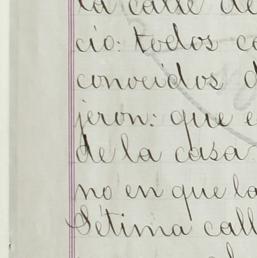 la calle de
cio: todos co
conocidos d
jeron: que e
de la casa
no en que la
Sétima call